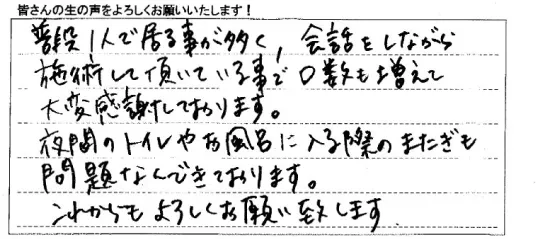 皆さんの生の声をよろしくお願いいたします！
普段1人で居る事が多く，会話をしながら
施術して頂いている事で口数も増えて
大変感謝しております。
夜間のトイレやお風呂に入る際のまたぎも
問題なんできております。
これからもよろしくお願い致します